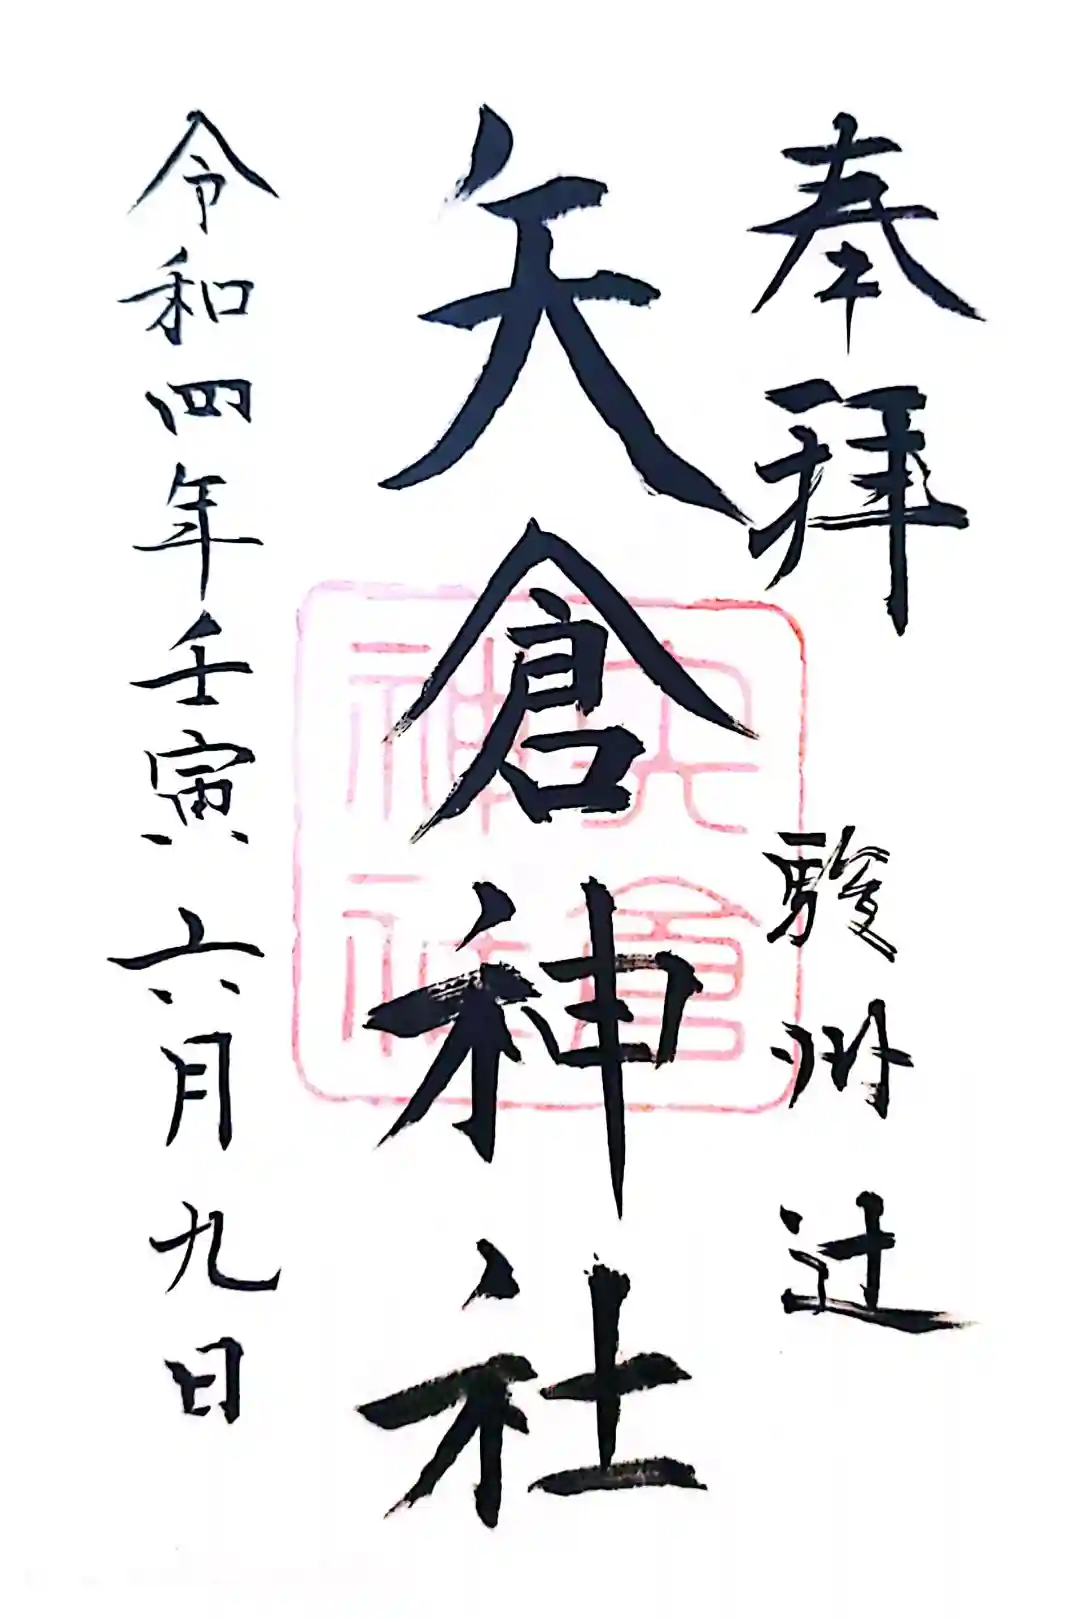 奉拜 駿州辻
矢倉神社
令和四年壬寅六月九日
矢倉
神社